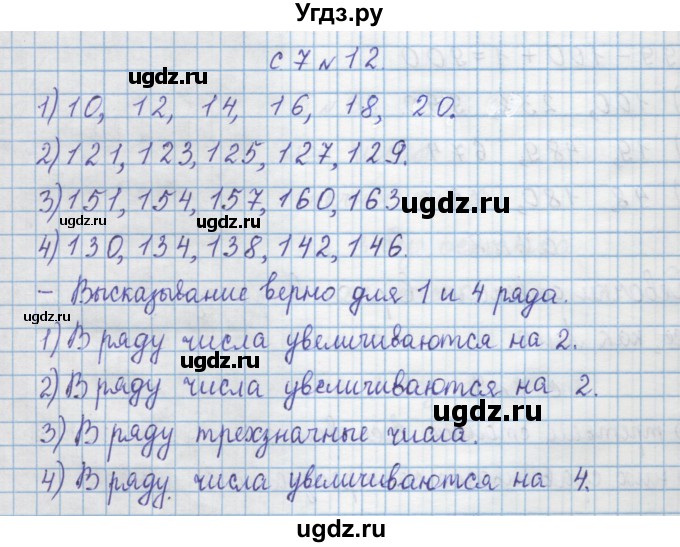 Угдз.ру
с 7 № 12.
ugdz.ru
1) 10, 12, 14, 16, 18, 20.
ugdz.ru
2) 121, 123, 125, 127, 129.
3) 151, 154, 157, 160, 163
ugdz.ru
ugdz.ru ugdz.ru
4) 130, 134, 138, 142, 146.
– Высказывание верно для 1 и 4 ряда.
ugdz.ru
1) В ряду числа увеличиваются на 2.
ugdz.ru
2) В ряду числа увеличиваются на 2.
ugdz.ru
3) В ряду трехзначные числа.
4) В ряду числа увеличиваются на 4.
ugdz.ru